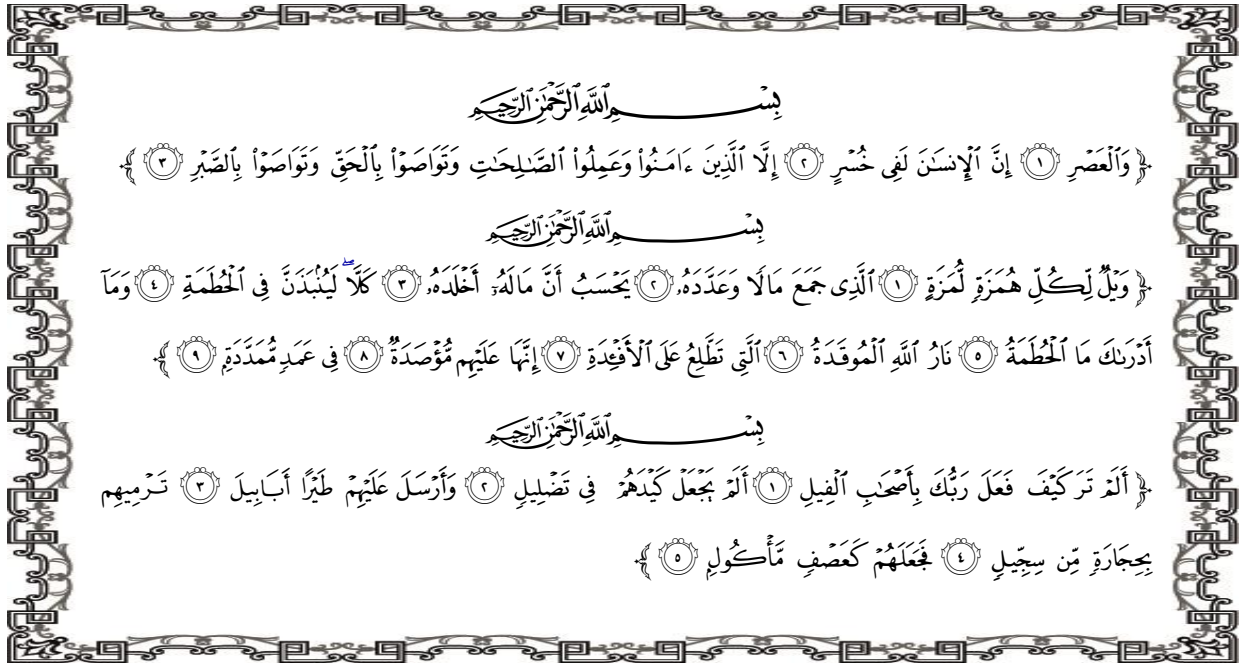 بِسْمِ ٱللَّهِ ٱلرَّحْمَٰنِ ٱلرَّحِيمِ
﴿ وَٱلْعَصْرِ ١ إِنَّ ٱلْإِنسَٰنَ لَفِى خُسْرٍ ٢ إِلَّا ٱلَّذِينَ ءَامَنُوا۟ وَعَمِلُوا۟ ٱلصَّٰلِحَٰتِ وَتَوَاصَوْا۟ بِٱلْحَقِّ وَتَوَاصَوْا۟ بِٱلصَّبْرِ ٣ ﴾
بِسْمِ ٱللَّهِ ٱلرَّحْمَٰنِ ٱلرَّحِيمِ
﴿ وَيْلٌ لِّكُلِّ هُمَزَةٍ لُّمَزَةٍ ١ ٱلَّذِى جَمَعَ مَالًا وَعَدَّدَهُۥ ٢ يَحْسَبُ أَنَّ مَالَهُۥٓ أَخْلَدَهُۥ ٣ كَلَّا ۖ لَيُنۢبَذَنَّ فِى ٱلْحُطَمَةِ ٤ وَمَآ
أَدْرَىٰكَ مَا ٱلْحُطَمَةُ ٥ نَارُ ٱللَّهِ ٱلْمُوقَدَةُ ٦ ٱلَّتِى تَطَّلِعُ عَلَى ٱلْأَفْـِٔدَةِ ٧ إِنَّهَا عَلَيْهِم مُّؤْصَدَةٌ ٨ فِى عَمَدٍ مُّمَدَّدَةٍۭ ٩ ﴾
بِسْمِ ٱللَّهِ ٱلرَّحْمَٰنِ ٱلرَّحِيمِ
﴿ أَلَمْ تَرَ كَيْفَ فَعَلَ رَبُّكَ بِأَصْحَٰبِ ٱلْفِيلِ ١ أَلَمْ يَجْعَلْ كَيْدَهُمْ فِى تَضْلِيلٍ ٢ وَأَرْسَلَ عَلَيْهِمْ طَيْرًا أَبَابِيلَ ٣ تَرْمِيهِم
بِحِجَارَةٍ مِّن سِجِّيلٍ ٤ فَجَعَلَهُمْ كَعَصْفٍ مَّأْكُولٍۭ ٥ ﴾